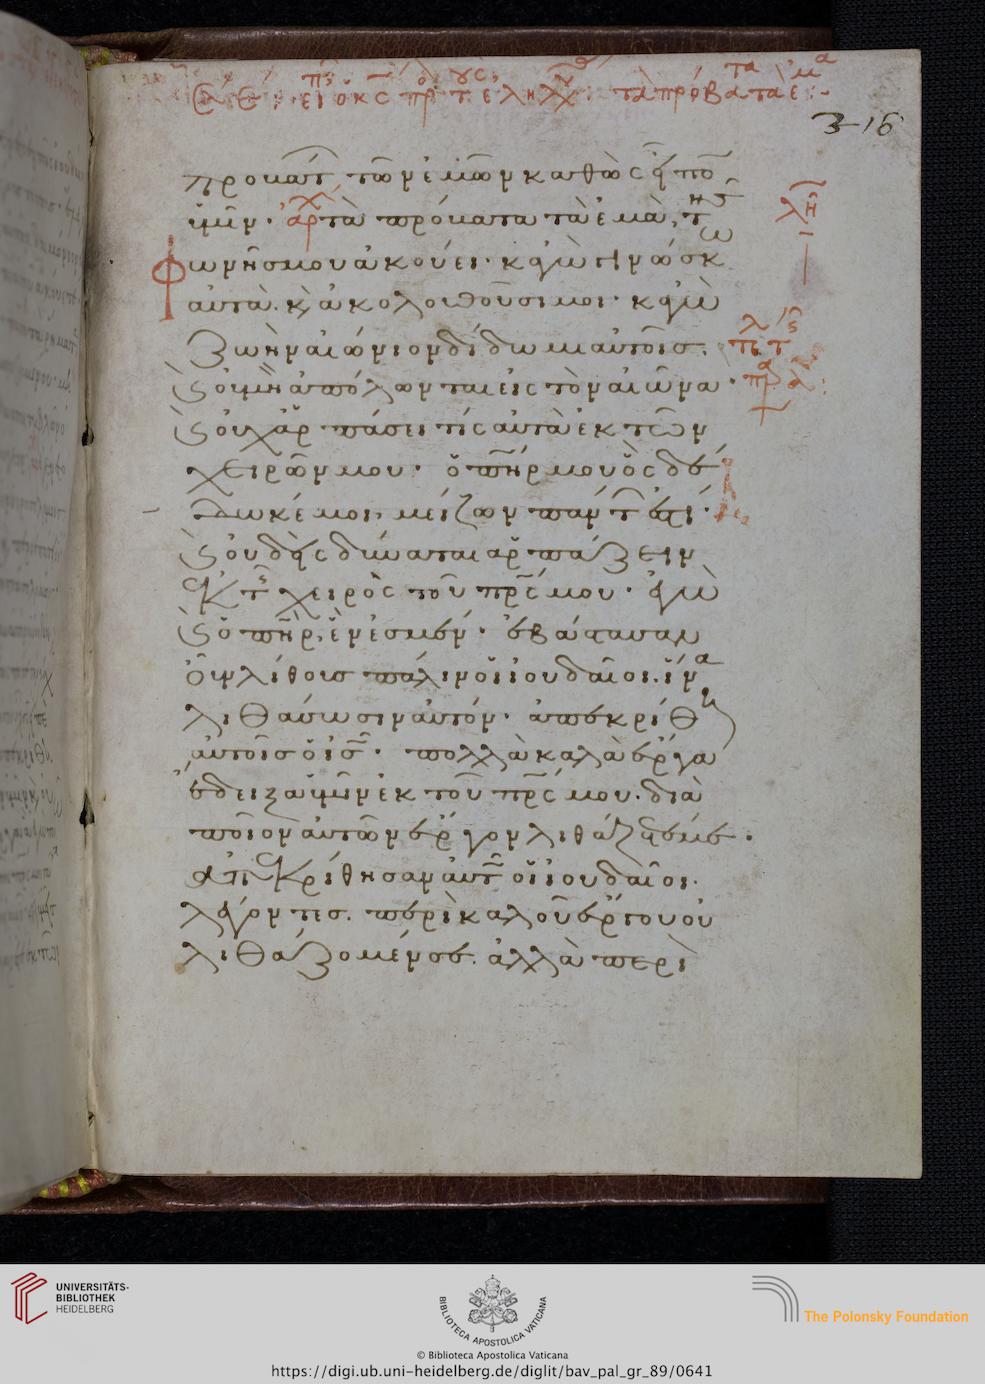 τὰ πρόβατα
316
προβάτ τῶν ἐμῶν καθὼς εἶπον
ὑμῖν· ἀρχ τὰ πρόβατα τὰ ἐμὰ, τῆς
φωνῆς μου ἀκούει· κἀγὼ γινώσκω
αὐτὰ. κ ἀκολουθοῦσι μοι· κἀγὼ
ζωὴν αἰώνιον δίδωμι αὐτοῖς.
κ οὐ μὴ ἀπόλωνται εἰς τὸν αἰῶνα·
κ οὐχ ἁρπάσει τίς αὐτὰ ἐκ τῶν
χειρῶν μου· ὁ πηρ μου ὃς δέ
δωκέ μοι, μείζων πάντ ἐστί·
κ οὐδεὶς δύναται ἁρπάζειν
ἐκ τῆς χειρὸς τοῦ πρς μου· ἐγὼ
κ ὁ πηρ, ἕν ἐσμέν· ἐβάστασαν
οὖν λίθους πάλιν οἱ ἰουδαῖοι. ἵνα
λιθάσωσιν αὐτόν· ἀπεκρίθη
αὐτοῖς ὁ ις· πολλὰ καλὰ ἔργα
ἔδειξα ὑμῖν ἐκ τοῦ πρς μου. διὰ
ποῖον αὐτῶν ἔργον λιθάζετέ με·
ἀπεκρίθησαν αὐτῶ οἱ ἰουδαῖοι.
λέγοντες. περὶ καλοῦ ἔργου οὐ
λιθάζομέν σε. ἀλλὰ περὶ
UNIVERSITÄTS-
BIBLIOTHEK
HEIDELBERG
BIBLIOTECA APOSTOLICA VATICANA
The Polonsky Foundation
© Biblioteca Apostolica Vaticana
https://digi.ub.uni-heidelberg.de/diglit/bav_pal_gr_89/0641